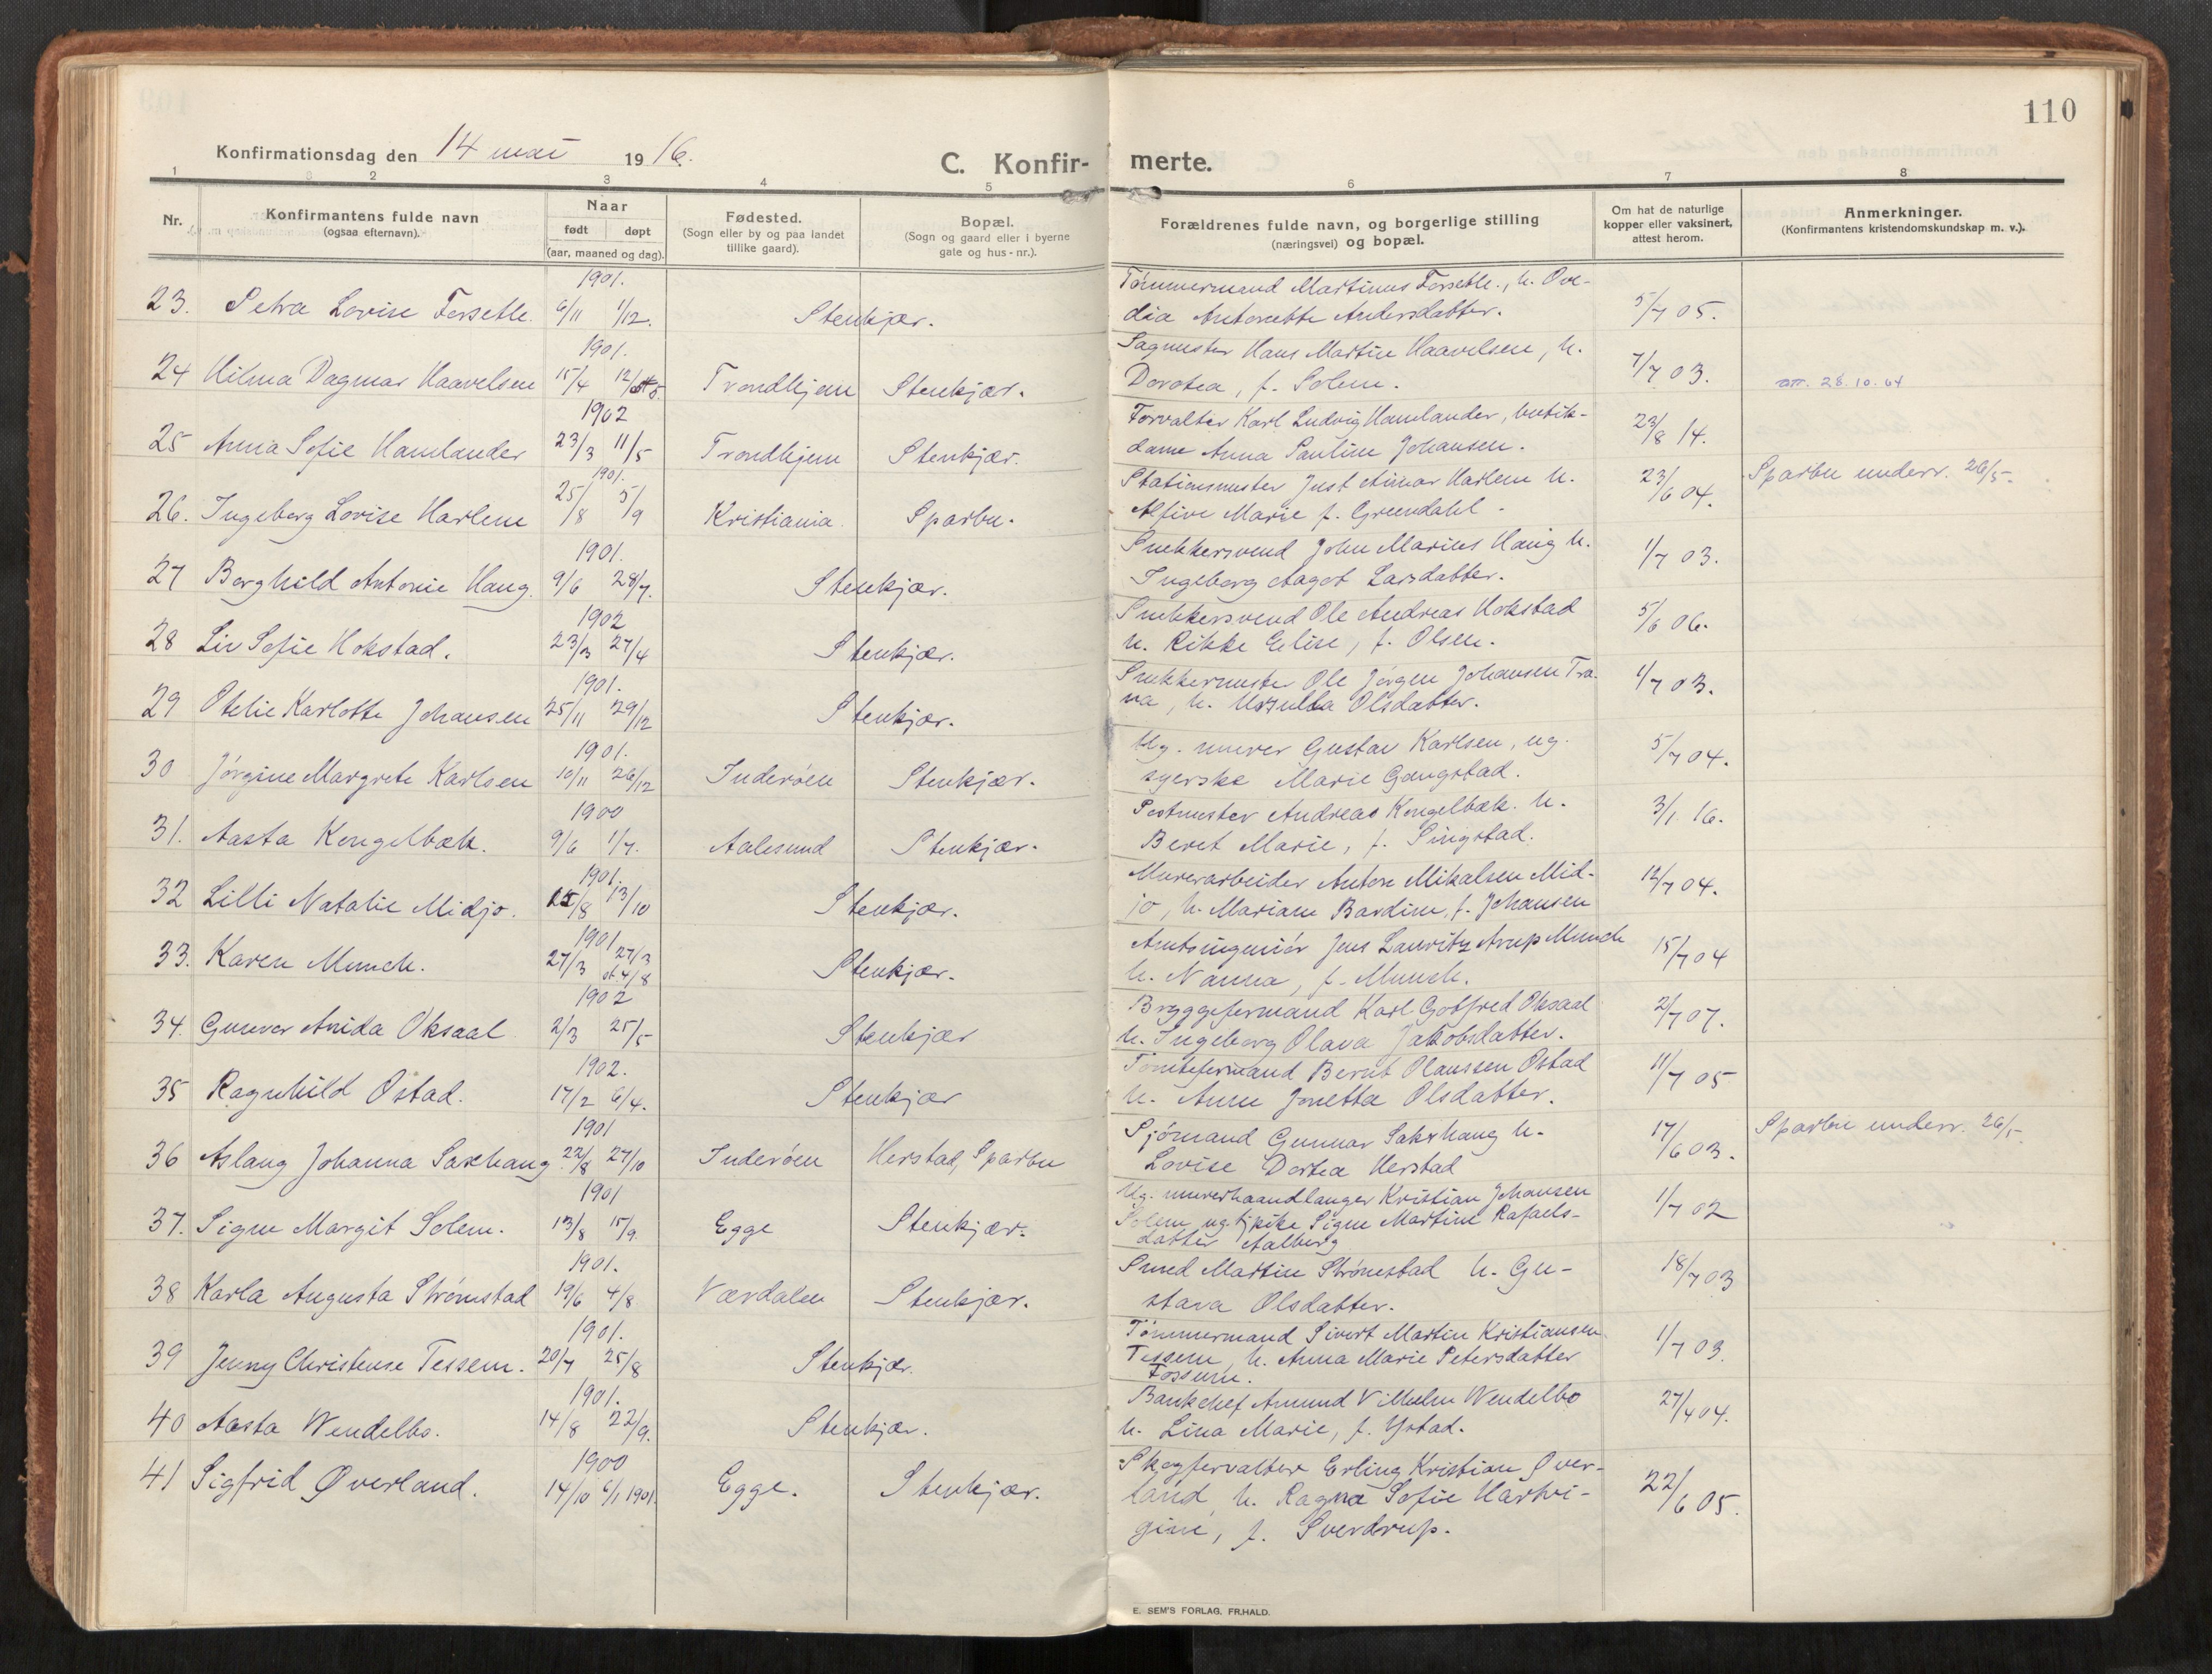 110
Konfirmationsdag den 14 mai 1916.
C. Konfir- merte.
1 2 3 4 5 6 7 8
Nr.
Konfirmantens fulde navn
(ogsaa efternavn).
Naar
født døpt
(aar, maaned og dag).
Fødested.
(Sogn eller by og paa landet
tillike gaard).
Bopæl.
(Sogn og gaard eller i byerne
gate og hus-nr.).
Forældrenes fulde navn, og borgerlige stilling
(næringsvei) og bopæl.
Om hat de naturlige
kopper eller vaksinert,
attest herom.
Anmerkninger.
(Konfirmantens kristendomskundskap m. v.).
1901.
23. Petra Lovise Forsetle. 6/11 1/12. Stenkjær. 5/7 05.
Tømmermand Martinus Forsetle., h. Ove-
dia Antonette Andersdatter.
1901.
24 Hilma Dagmar Haavelsen 15/4 12/5. Trondhjem Stenkjær. 7/7 03. 28.10.64
Sagmester Hans Martin Haavelsen, h.
Dorotea, f. Solem.
1902
25 Anna Sofie Hamlander 23/3 11/5 Trondhjem Stenkjær. 23/8 14.
Forvalter Karl Ludvig Hamlander, butik-
dame Anna Pauline Johansen.
1901.
26. Ingeborg Lovise Harlem 25/8 5/9 Kristiania. Sparbu. 23/6 04. Sparbu underr. 26/5-
Stationsmester Just Harlem h.
Alfive Marie f. Grøndahl.
1901.
27 Borghild Antonie Haug. 9/6 28/7. Stenkjær. 1/7 03.
Snekkersvend John Marius Haug h.
Ingeborg Aagot Larsdatter.
1902
28 Liv Sofie Hokstad. 23/3 27/4 Stenkjær. 5/6 06.
Snekkersvend Ole Andreas Hokstad
h. Rikke Elise, f. Olsen.
1901.
29 Otelie Karlotte Johansen 25/11 29/12 Stenkjær. 1/7 03.
Snekkermester Ole Jørgen Johansen Tra-
na, h. Ursulla Olsdatter.
1901.
30 Jørgine Margrete Karlsen 10/11 26/12 Inderøen Stenkjær. 5/7 04.
Ug. murer Gustav Karlsen, ug.
syerske Marie Gangstad.
1900
31. Aasta Kongelbæk. 9/6 1/7. Aalesund Stenkjær. 3/1. 16.
Postmester Andreas Kongelbæk. h.
Beret Marie, f. Singstad.
1901.
32 Lilli Natalie Midjo. 15/8 13/10 Stenkjær. 12/7 04.
Murerarbeider Anton Mikalsen Mid-
jo, h. Mariane Bardine, f. Johansen
1901
33. Karen Munch. 27/3 27/3 st. 4/8 Stenkjær. 15/7 04
Amtsingeniør Jens Lauritz Arup Munch
h. Nanna, f. Munch.
1902
34. Gunvor Arida Oksaal 2/3 25/5 Stenkjær 2/7 07.
Bryggeformand Karl Gotfred Oksaal
h. Ingeborg Olava Jakobsdatter.
1902.
35 Ragnhild Østad. 17/2 6/4. Stenkjær 11/7 05
Tomteformand Bernt Olaussen Østad
h. Anne Jonetta Olsdatter.
1901
36 Aslaug Johanna Saxhaug 22/8 27/10 Inderøen Herstad, Sparbu 17/6 03. Sparbu underr. 26/5-
Sjømand Gunnar Sakshaug h.
Lovise Dortea Herstad
1901
37. Signe Margit Solem. 13/8 15/9. Egge Stenkjær. 1/7 02
Ug. murerhaandlanger Kristian Johansen
Solem, ug. tj.pike Signe Martine Rafaels-
datter Aalberg
1901.
38 Karla Augusta Strømstad 19/6 4/8 Værdalen Stenkjær. 18/7 03
Smed Martin Strømstad h. Gu-
stava Olsdatter.
1901.
39 Jenny Christense Tessem. 20/7 25/8 Stenkjær. 1/7 03.
Tømmermand Sivert Martin Kristiansen
Tessem, h. Anna Marie Petersdatter
Fossum.
1901.
40 Aasta Wendelbo. 14/8 22/9. Stenkjær. 27/4 04.
Bankchef Amund Vilhelm Wendelbo
h. Lina Marie, f. Ystad.
1900
41 Sigfrid Øverland. 14/10 6/1 1901. Egge. Stenkjær. 22/6 05.
Skogforvalter Erling Kristian Øver-
land, h. Ragna Sofie Hartvi-
gine, f. Sverdrup.
E. SEM'S FORLAG, FR.HALD.